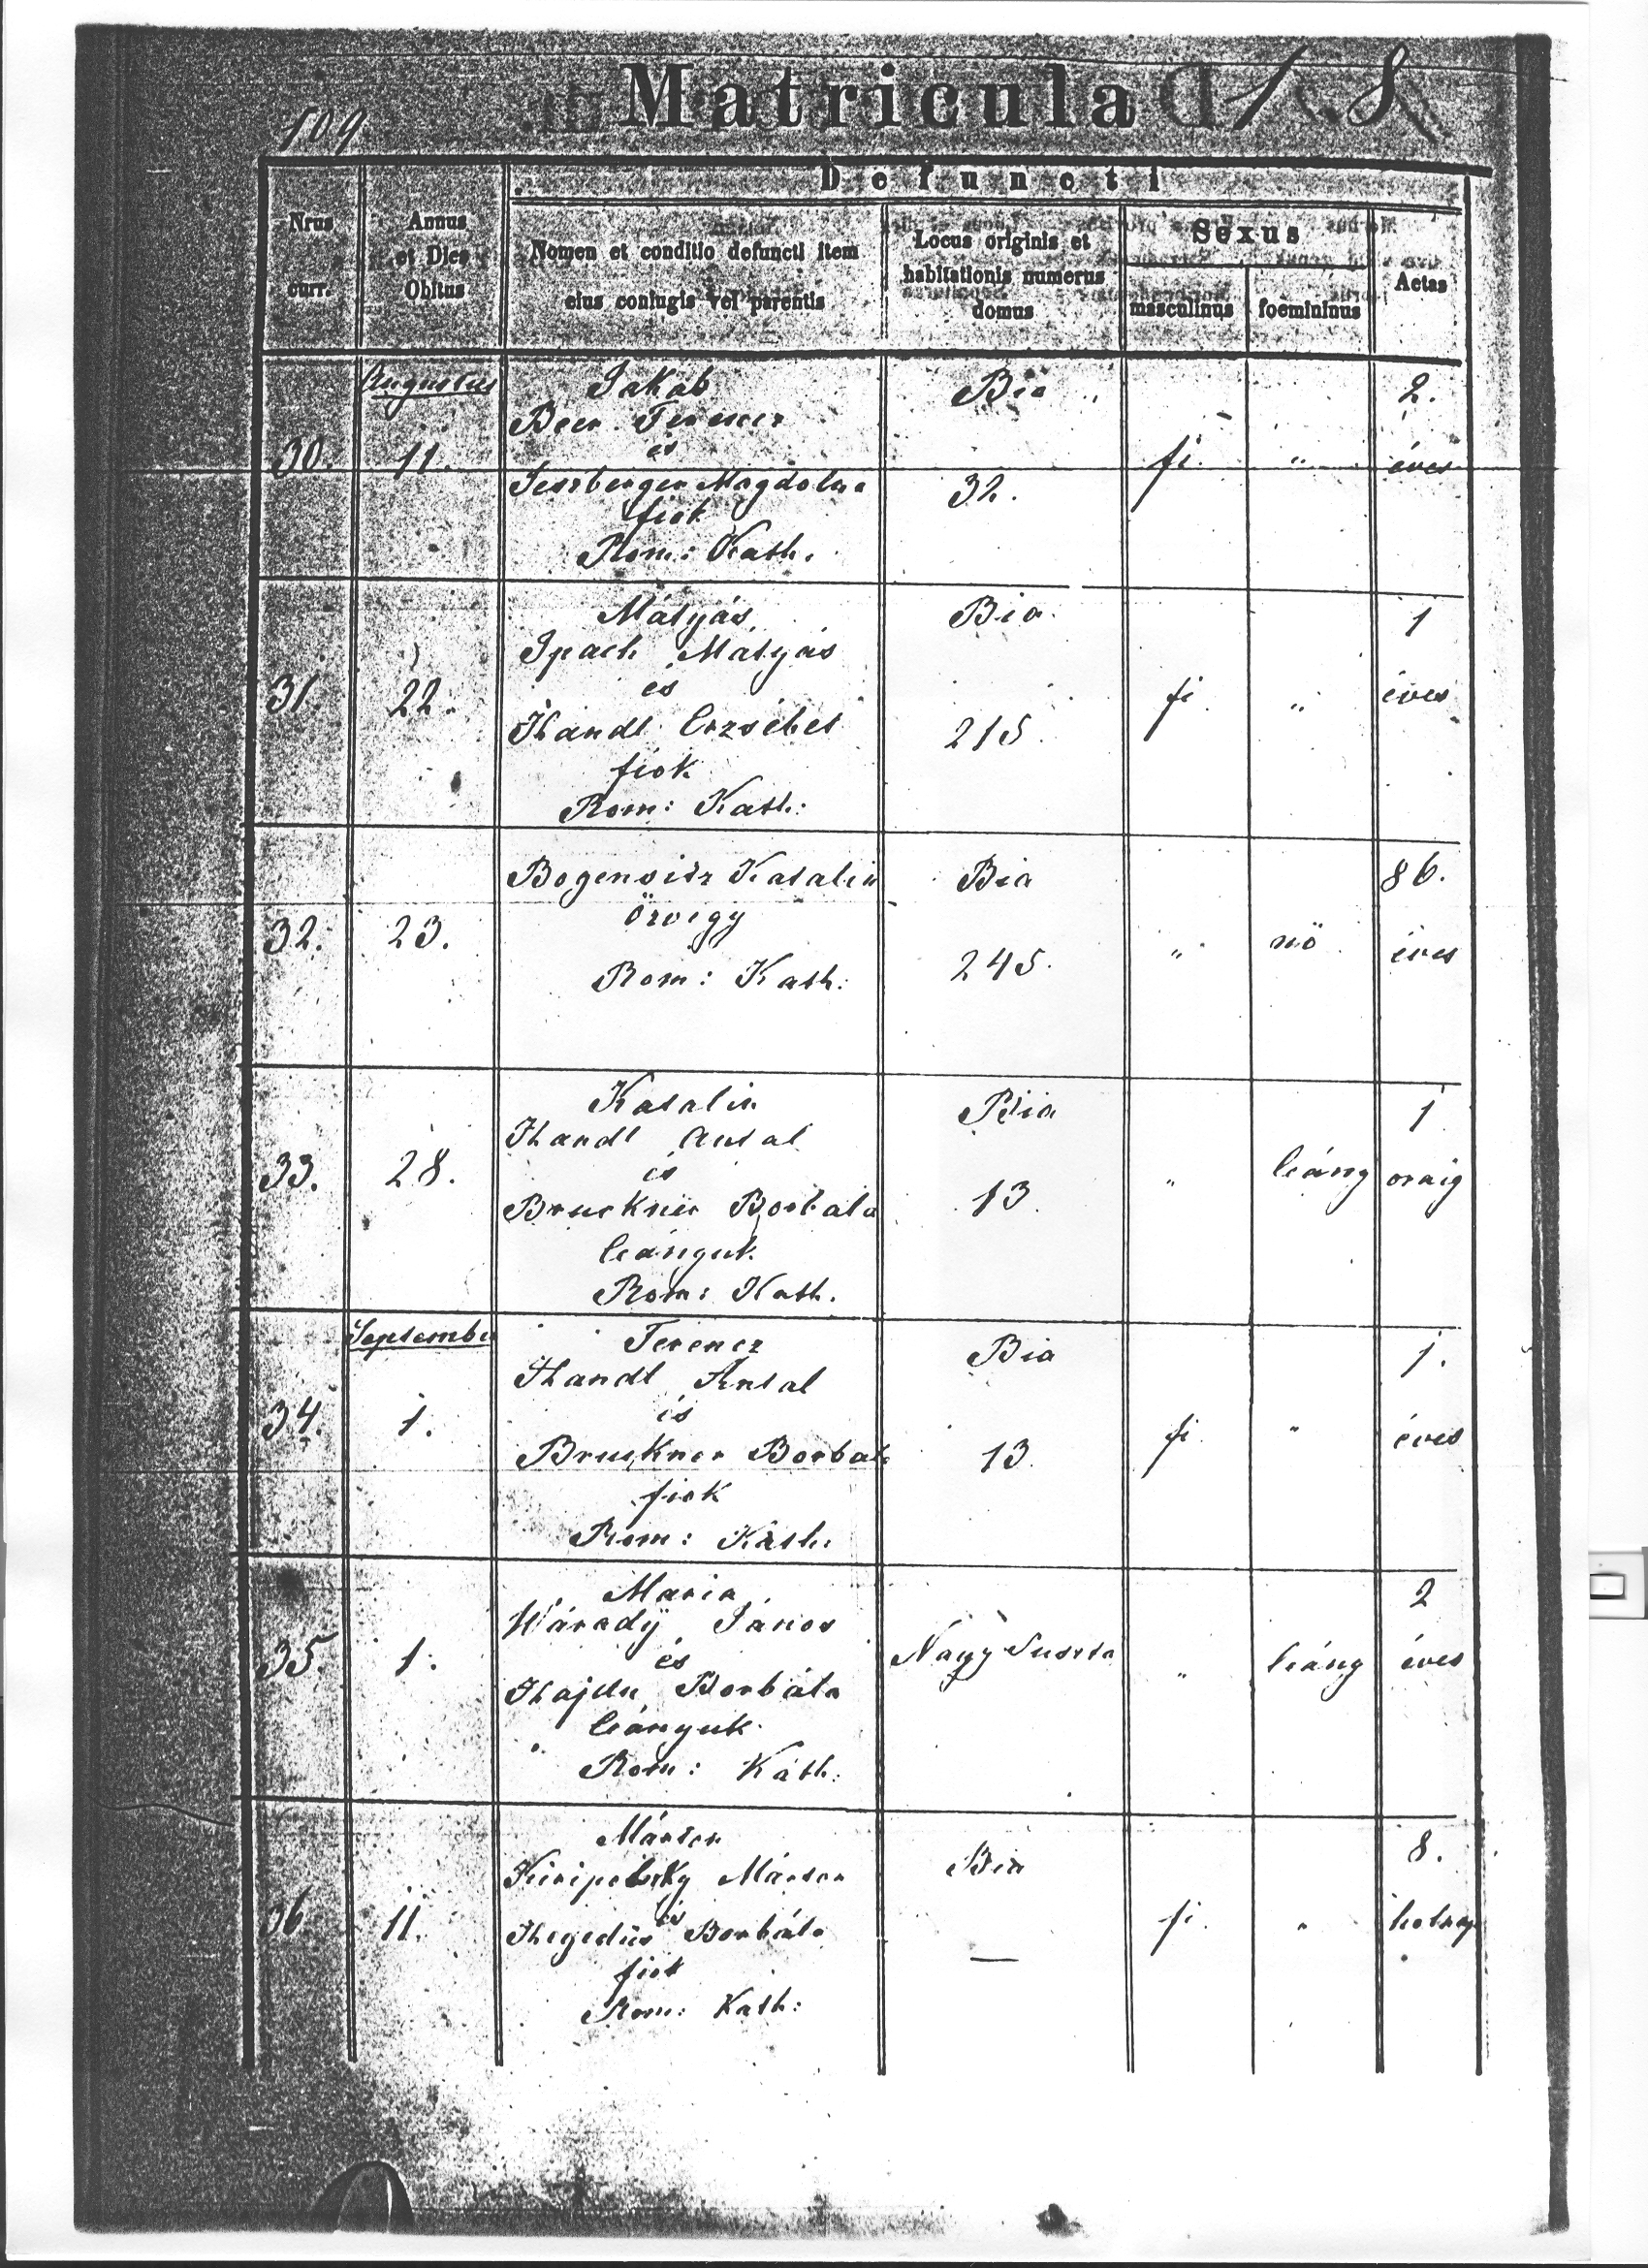 109
Matricula 18
Defuncti
Nrus curr.
Annus et Dies Obitus
Nomen et conditio defuncti item eius coniugis vel parentis
Locus originis et habitationis numerus domus
Sexus
masculinus
foemininus
Aetas
Augustus
30. 11.
Jakab
Beer Ferencz
és
Magdolna
fiok
Rom: Kath.
Bia
32.
fi. „
2.
éves
31. 22.
Mátyás
Ipach Mátyás
és
Handl Erzsébet
fiok
Rom: Kath:
Bia
215.
fi. „
1
éves
32. 23.
Katalin
özvegy
Rom: Kath:
Bia
245.
„ nö
86.
éves
33. 28.
Katalin
Handl Antal
és
Bruckner Borbala
leányuk
Rom: Kath.
Bia
13.
„ leány
1
oraig
September
34. 1.
Ferencz
Handl Antal
és
Bruckner Borbala
fiok
Rom: Kath.
Bia
13.
fi. „
1.
éves
35. 1.
Maria
Várady János
és
Hajdu Borbála
leányuk
Rom: Kath:
Nagy
„ leány
2
éves
36 11.
Márton
Márton
és
Hegedüs Borbála
fiok
Rom: Kath:
Bia
—
fi. „
8.
holnap